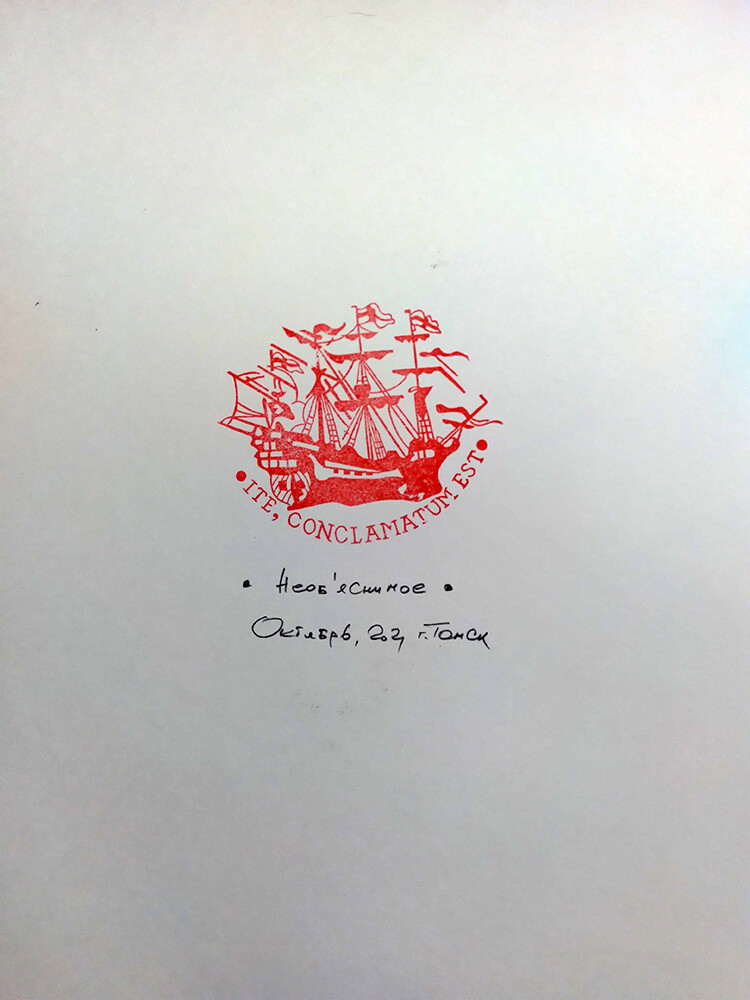 • ITE, CONCLAMATUM EST •
• Необ'яснимое •
Октябрь, 2021 г. Томск